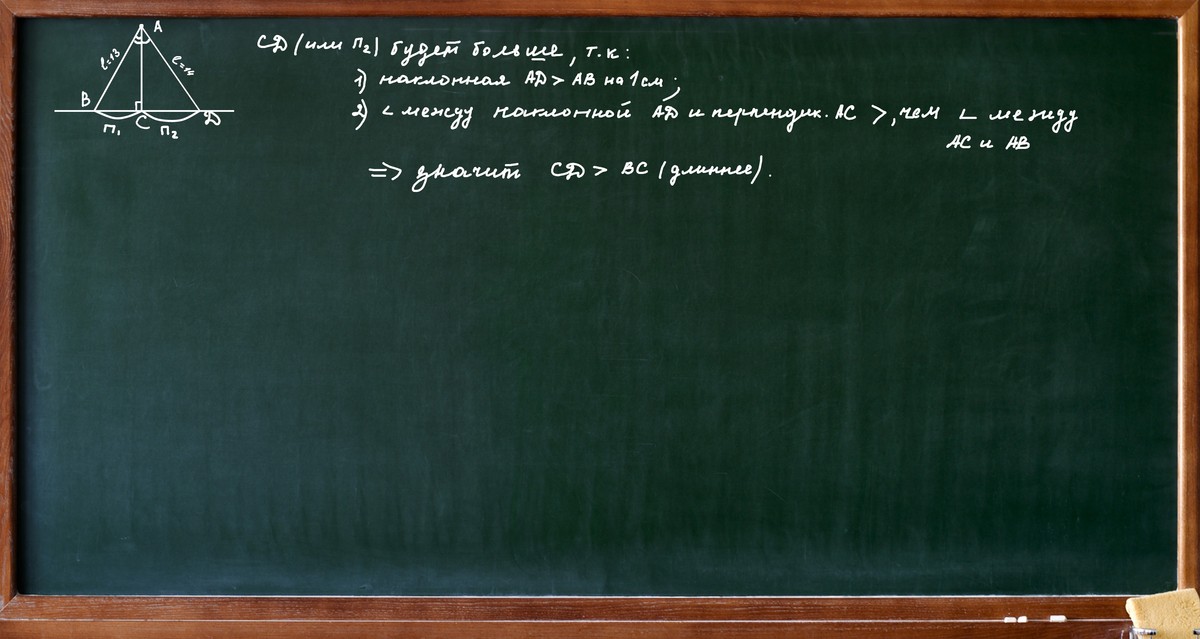 A
l=13
l=14
B
C
D
П₁
П₂
CD (или П₂) будет больше, т.к:
1) наклонная AD > AB на 1 см;
2) ∠ между наклонной AD и перпендик. AC >, чем ∠ между
AC и AB
=> значит CD > BC (длиннее).